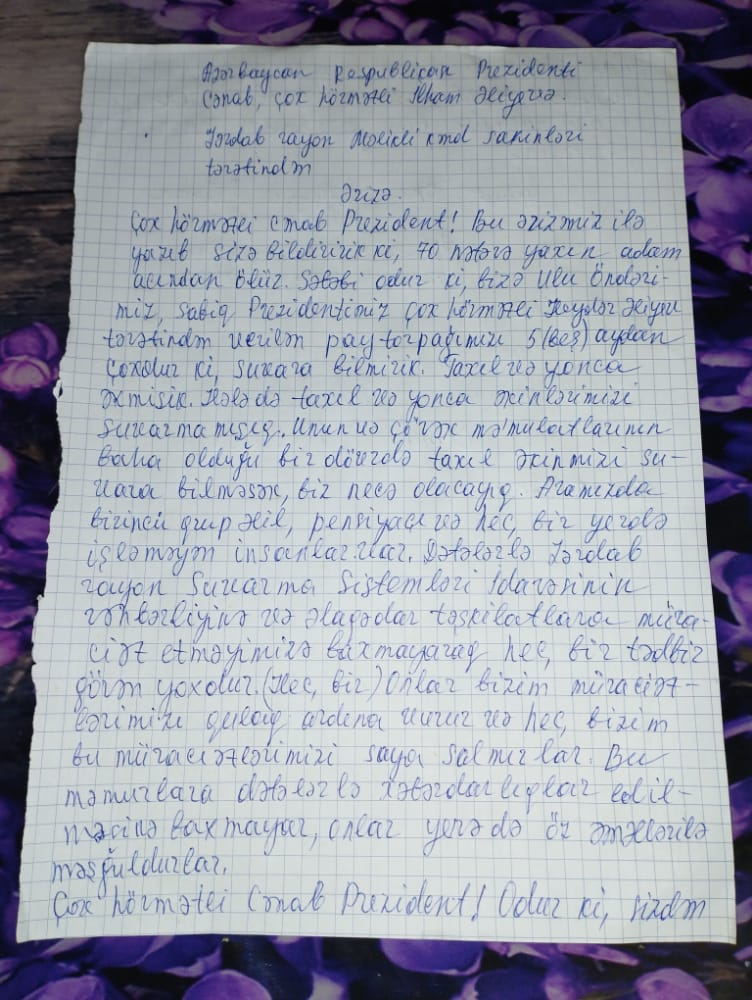 Azərbaycan Respublikan Prezidenti
Cənab, çox hörmətli İlham Əliyevə.
Zərdab rayon Məlikli kənd sakinləri
tərəfindən
Ərizə.
Çox hörmətli Cənab Prezident! Bu ərizəmiz ilə
yazıb sizə bildiririk ki, 70 nəfərə yaxın adam
acından ölür. Səbəbi odur ki, bizə Ulu Öndəri-
miz, sabiq Prezidentimiz çox hörmətli Heydər Əliyev
tərəfindən verilən pay torpağımızı 5 (beş) aydan
çoxdur ki, suvara bilmirik. Taxıl və yonca
əkmişik. Hələ də taxıl və yonca əkinlərimizi
suvarmamışıq. Unun və çörək mə'mulatlarının
baha olduğu bir dövrdə taxıl əkinmizi su-
vara bilməsək, biz necə olacayıq. Aramızda
birinci qrup əlil, pensiyaçı və heç, bir yerdə
işləməyən insanlar var. Dəfələrlə Zərdab
rayon Suvarma Sistemləri İdarəsinin
rəhbərliyinə və əlaqədar təşkilatlara müra-
ciət etməyimizə baxmayaraq heç, bir tədbir
görən yoxdur. (Heç, bir) Onlar bizim müraciət-
lərimizi qulaq ardına vurur və heç, bizim
bu müraciətlərimizi saya salmırlar. Bu
məmurlara dəfələrlə xəbərdarlıqlar edil-
məsinə baxmayar, onlar yenə də öz əməllərilə
məşğuldurlar.
Çox hörmətli Cənab Prezident! Odur ki, sizdən